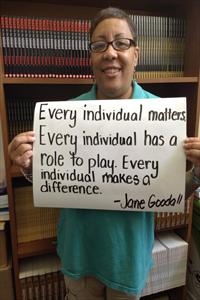 Every individual matters.
Every individual has a
role to play. Every
individual makes a
difference.
-Jane Goodall